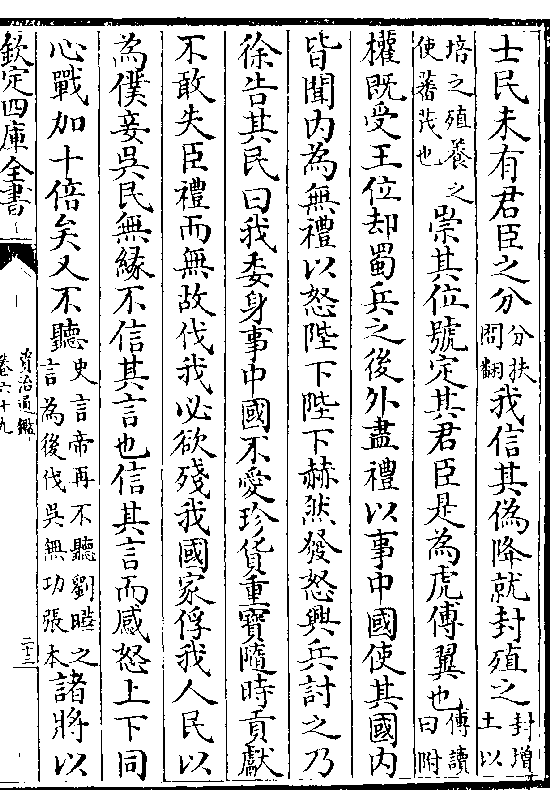 士民未有君臣之分分扶問翻我信其偽降就封殖之封增土以
培之殖養之使蕃茂也崇其位號定其君臣是為虎傅翼也傅讀曰附
權既受王位却蜀兵之後外盡禮以事中國使其國内
皆聞内為無禮以怒陛下陛下赫然發怒興兵討之乃
徐告其民曰我委身事中國不愛珍貨重寳隨時貢獻
不敢失臣禮而無故伐我必欲殘我國家俘我人民以
為僕妾吳民無緣不信其言也信其言而感怒上下同
心戰加十倍矣又不聽史言帝再不聽劉曄之言為後伐吳無功張本諸將以
欽定四庫全書
資治通鑑
卷六十九
二十三